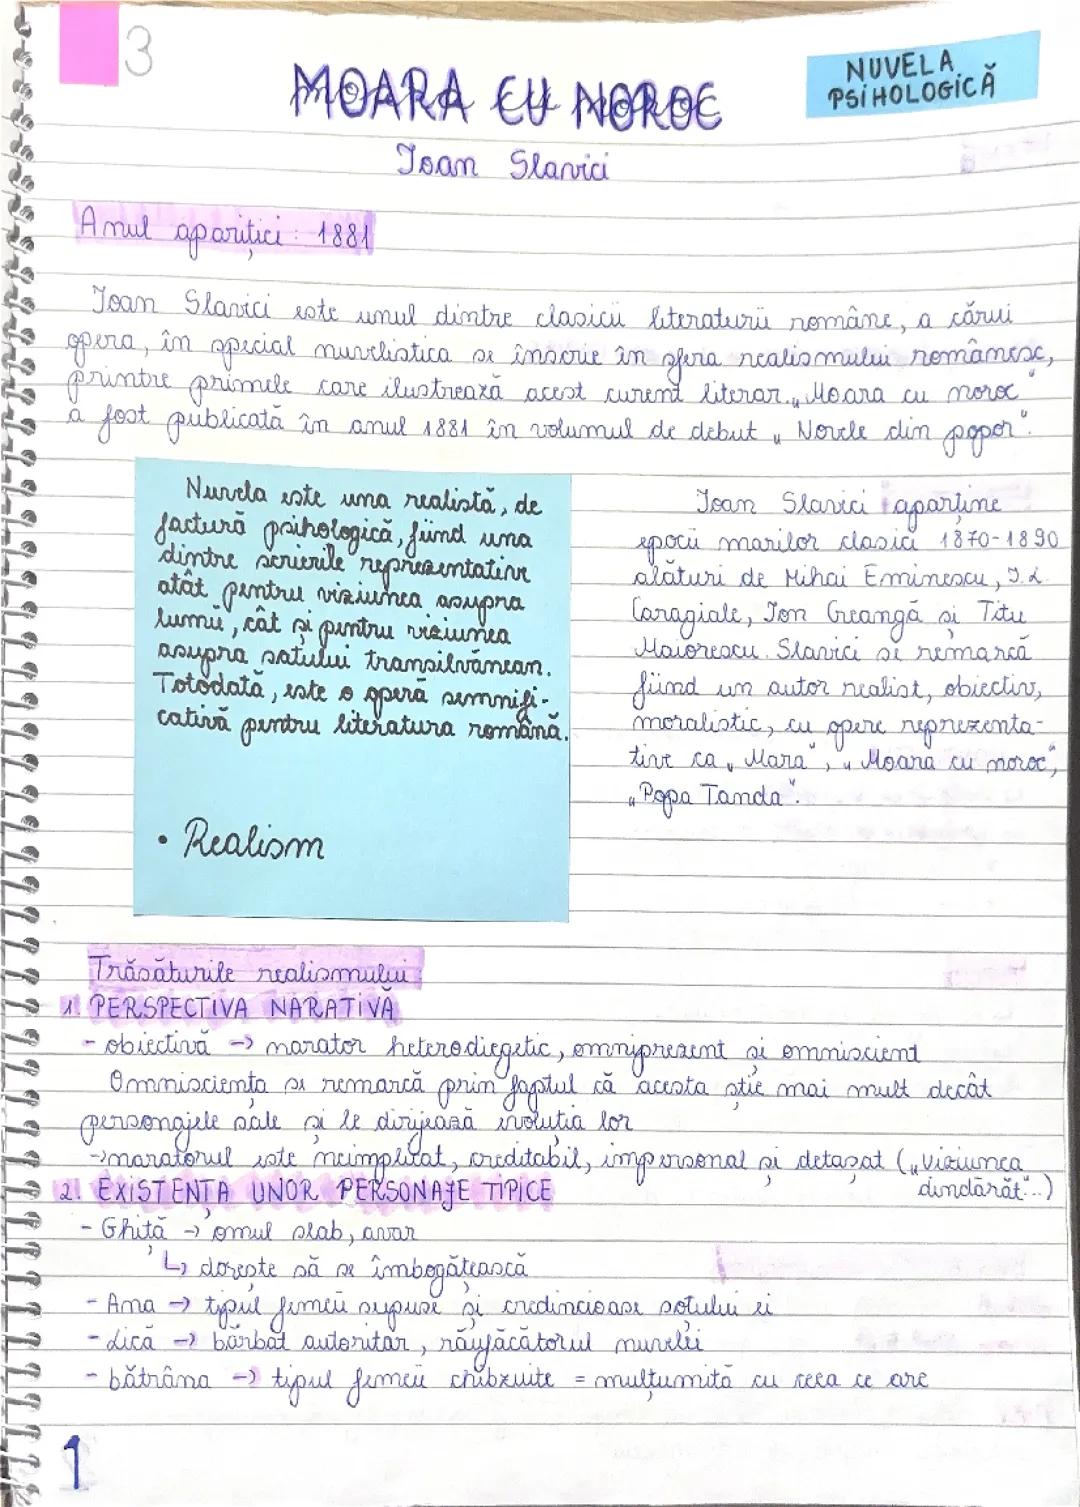 3
MOARA CU NOROC
NUVELA
PSIHOLOGICĂ
Ioan Slavici
Anul apariției: 1881
Ioan Slavici este unul dintre clasicii literaturii române, a cărui
opera, în special nuvelistica se înscrie în sfera realismului românesc,
printre primele care ilustrează acest curent literar. „Moara cu noroc"
a fost publicată în anul 1881 în volumul de debut „Novele din popor".
Nuvela este una realistă, de
factură psihologică, fiind una
dintre scrierile reprezentative
atât pentru viziunea asupra
lumii, cât și pentru viziunea
asupra satului transilvănean.
Totodată, este o operă semnifi-
cativă pentru literatura română.
• Realism
Ioan Slavici aparține
epocii marilor clasici 1870-1890
alături de Mihai Eminescu, I.L.
Caragiale, Ion Creangă și Titu
Maiorescu. Slavici se remarcă
fiind un autor realist, obiectiv,
moralistic, cu opere reprezenta-
tive ca „Mara", „Moara cu noroc",
„Popa Tanda".
Trăsăturile realismului:
1. PERSPECTIVA NARATIVĂ
- obiectivă -> narator heterodiegetic, omniprezent și omniscient
Omnisciența se remarcă prin faptul că acesta știe mai mult decât
personajele sale și le dirijează evoluția lor
->naratorul este neimplicat, creditabil, impersonal și detașat („Viziunea
dindărăt"...)
2. EXISTENȚA UNOR PERSONAJE TIPICE
- Ghiță -> omul slab, avar
↳ dorește să se îmbogățească
- Ana -> tipul femeii supuse și credincioase soțului ei
- Lică -> bărbat autoritar, răufăcătorul nuvelei
- bătrâna -> tipul femeii chibzuite = mulțumită cu ceea ce are
1